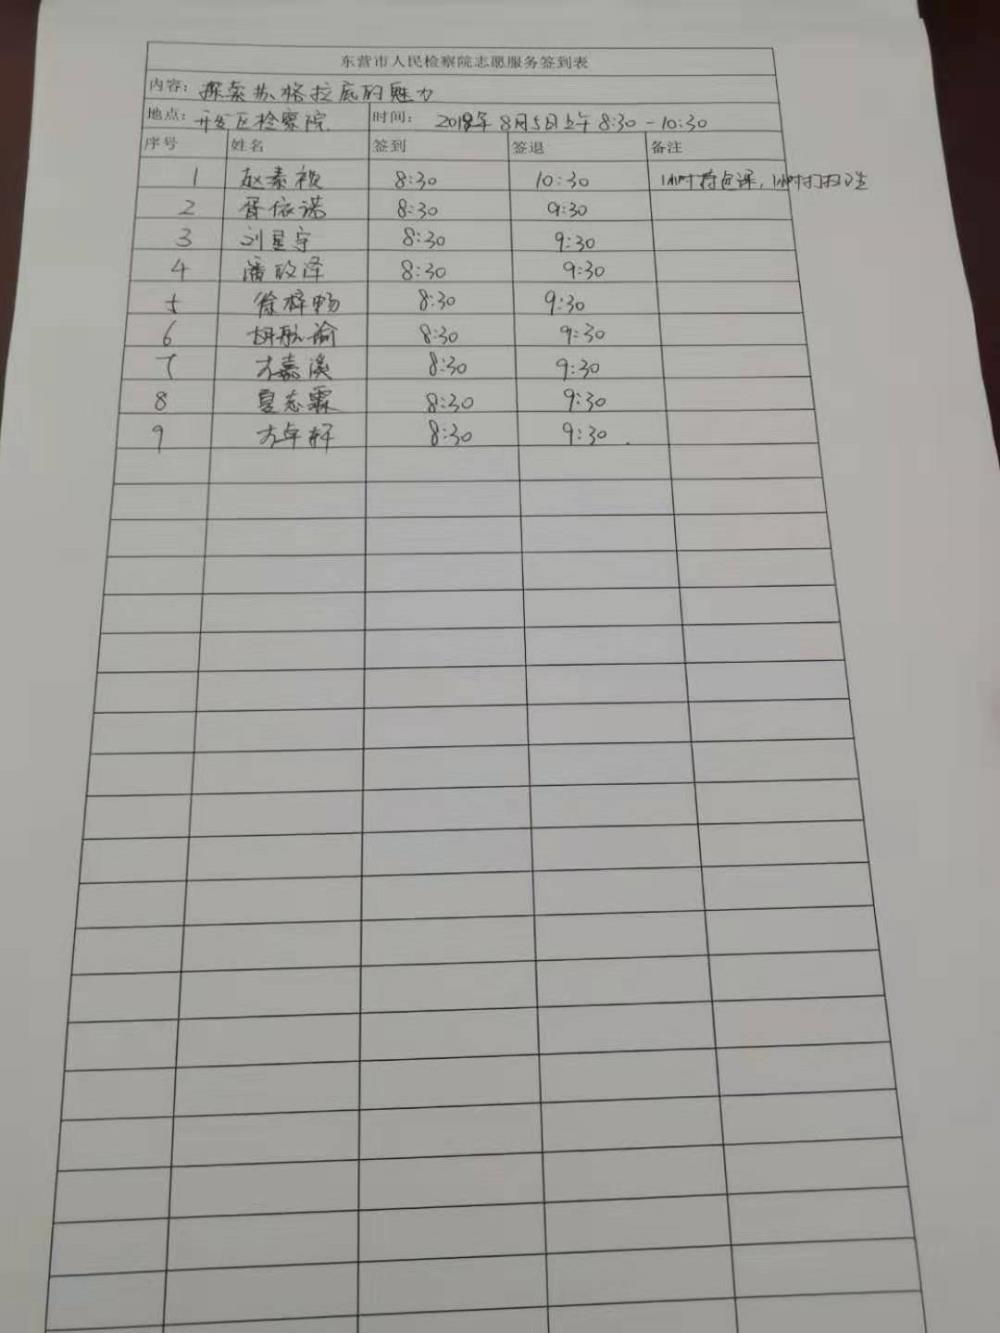 东营市人民检察院志愿服务签到表
内容：探索苏格拉底的魅力
地点：开发区检察院 时间：2018年8月5日上午8:30-10:30
序号 姓名 签到 签退 备注
1 赵素祯 8:30 10:30 1小时 课，1小时打扫卫生
2 胥依诺 8:30 9:30
3 刘星宇 8:30 9:30
4 潘政泽 8:30 9:30
5 徐梓畅 8:30 9:30
6 胡航瑜 8:30 9:30
7 嘉溪 8:30 9:30
8 夏志霖 8:30 9:30
9 卓轩 8:30 9:30